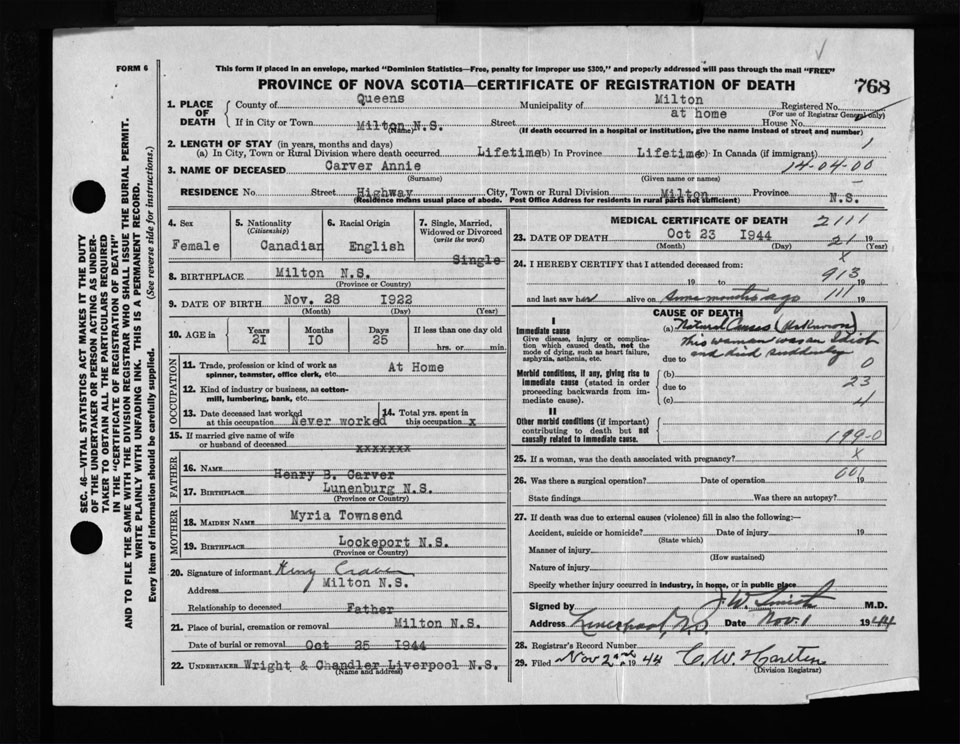 FORM 6
This form if placed in an envelope, marked "Dominion Statistics—Free, penalty for improper use $300," and properly addressed will pass through the mail "FREE"
PROVINCE OF NOVA SCOTIA—CERTIFICATE OF REGISTRATION OF DEATH
768
1. PLACE OF DEATH
County of Queens Municipality of Milton Registered No.
(For use of Registrar General only)
If in City or Town Milton N.S. Street at home House No.
(Name) (If death occurred in a hospital or institution, give the name instead of street and number)
2. LENGTH OF STAY (in years, months and days)
1
(a) In City, Town or Rural Division where death occurred Lifetime (b) In Province Lifetime (c) In Canada (if immigrant)
3. NAME OF DECEASED Carver Annie 14-04-00
(Surname) (Given name or names)
RESIDENCE No. Street Highway City, Town or Rural Division Milton Province N.S.
(Residence means usual place of abode. Post Office Address for residents in rural parts not sufficient)
4. Sex Female
5. Nationality (Citizenship) Canadian
6. Racial Origin English
7. Single, Married, Widowed or Divorced (write the word) Single
8. BIRTHPLACE Milton N.S.
(Province or Country)
9. DATE OF BIRTH Nov. 28 1922
(Month) (Day) (Year)
10. AGE in Years Months Days If less than one day old
21 10 25 hrs. or min.
OCCUPATION
11. Trade, profession or kind of work as spinner, teamster, office clerk, etc. At Home
12. Kind of industry or business, as cotton-mill, lumbering, bank, etc.
13. Date deceased last worked at this occupation Never worked
14. Total yrs. spent in this occupation x
15. If married give name of wife or husband of deceased xxxxxxx
FATHER
16. NAME Henry B. Carver
17. BIRTHPLACE Lunenburg N.S.
(Province or Country)
MOTHER
18. MAIDEN NAME Myria Townsend
19. BIRTHPLACE Lockeport N.S.
(Province or Country)
20. Signature of informant
Address Milton N.S.
Relationship to deceased Father
21. Place of burial, cremation or removal Milton N.S.
Date of burial or removal Oct 25 1944
22. UNDERTAKER Wright & Chandler Liverpool N.S.
(Name and address)
MEDICAL CERTIFICATE OF DEATH
2111
23. DATE OF DEATH Oct 23 1944 21 19
(Month) (Day) (Year)
x
24. I HEREBY CERTIFY that I attended deceased from:
913
19 to 19
and last saw her alive on some months ago 111 19
CAUSE OF DEATH
I
Immediate cause
Give disease, injury or complication which caused death, not the mode of dying, such as heart failure, asphyxia, asthenia, etc.
(a) Natural Causes (Unknown)
This woman was an Idiot
due to and died suddenly
0
Morbid conditions, if any, giving rise to immediate cause (stated in order proceeding backwards from immediate cause).
(b)
due to 23
(c) 4
II
Other morbid conditions (if important) contributing to death but not causally related to immediate cause.
199-0
25. If a woman, was the death associated with pregnancy? x
26. Was there a surgical operation? Date of operation 001 19
State findings Was there an autopsy?
27. If death was due to external causes (violence) fill in also the following:—
Accident, suicide or homicide? Date of injury 19
(State which)
Manner of injury
(How sustained)
Nature of injury
Specify whether injury occurred in industry, in home, or in public place
Signed by J. W. Smith M.D.
Address Liverpool, N.S. Date Nov. 1 1944
28. Registrar's Record Number
29. Filed Nov 2nd 1944
(Division Registrar)
SEC. 46—VITAL STATISTICS ACT MAKES IT THE DUTY
OF THE UNDERTAKER OR PERSON ACTING AS UNDER-
TAKER TO OBTAIN ALL THE PARTICULARS REQUIRED
IN THE "CERTIFICATE OF REGISTRATION OF DEATH"
AND TO FILE THE SAME WITH THE DIVISION REGISTRAR WHO SHALL ISSUE THE BURIAL PERMIT.
WRITE PLAINLY WITH UNFADING INK. THIS IS A PERMANENT RECORD.
Every item of information should be carefully supplied. (See reverse side for instructions.)